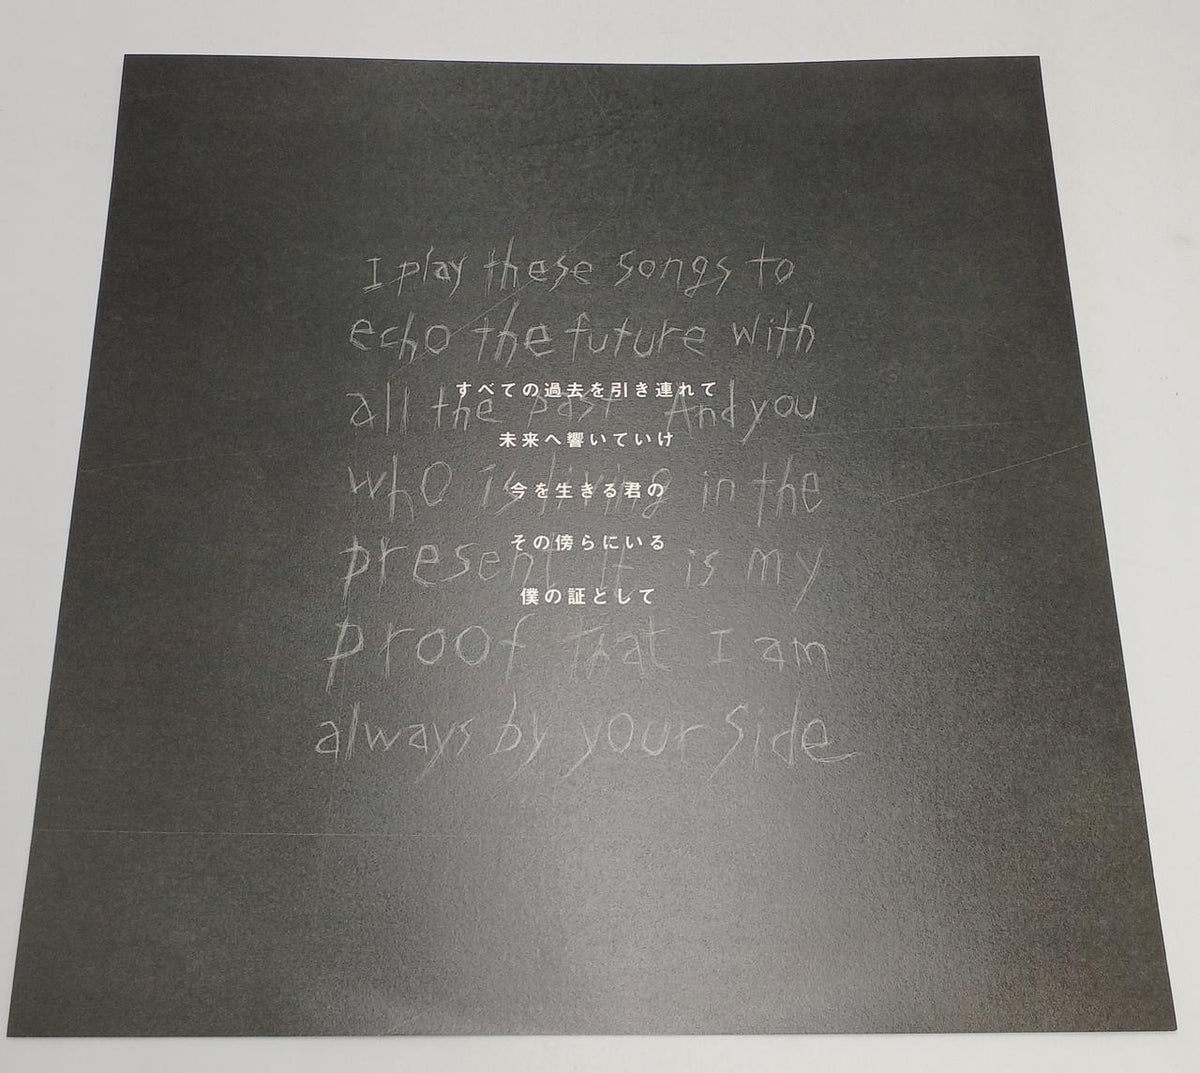 I play these songs to
echo the future with
すべての過去を引き連れて
all the past And you
未来へ響いていけ
who is living in the
今を生きる君の
その傍らにいる
present It is my
僕の証として
proof that I am
always by your side